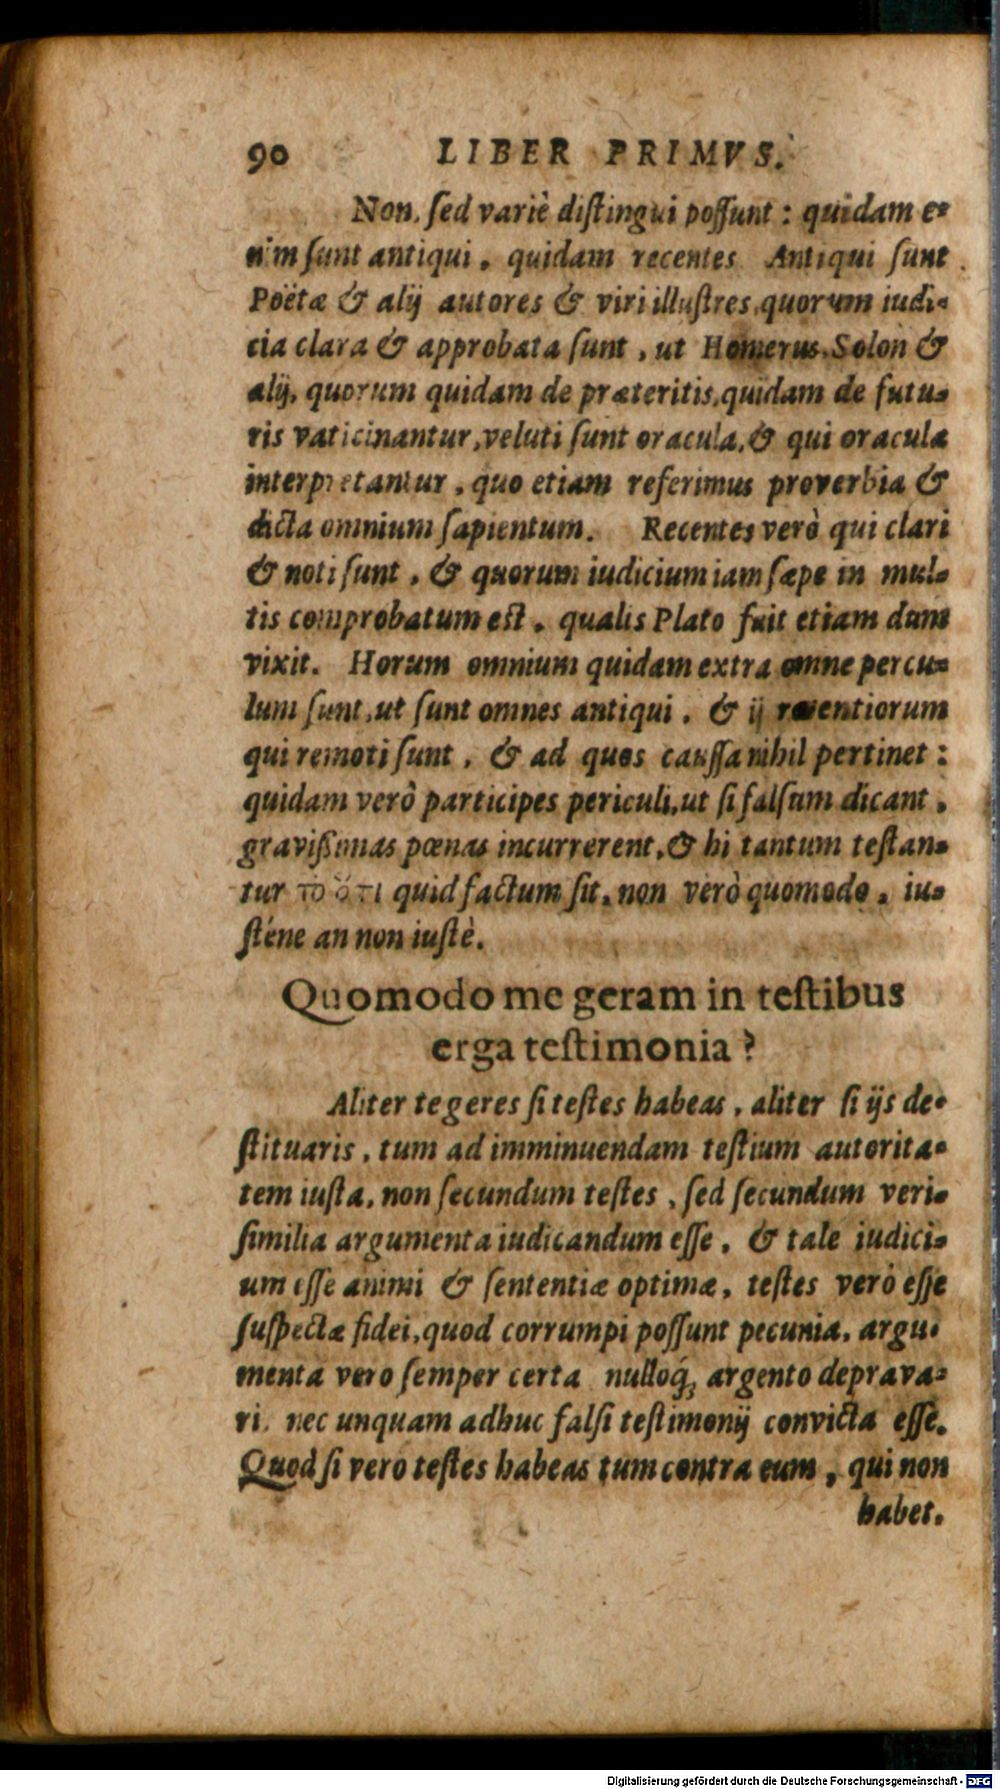 90 LIBER PRIMVS.
Non, ſed variè diſtingui poſſunt : quidam e-
nim ſunt antiqui, quidam recentes Antiqui ſunt
Poëtæ & alij autores & viri illuſtres, quorum iudi-
cia clara & approbata ſunt, ut Homerus, Solon &
alij, quorum quidam de præteritis, quidam de futu-
ris vaticinantur, veluti ſunt oracula, & qui oracula
interpretantur, quo etiam referimus proverbia &
dicta omnium ſapientum. Recentes verò qui clari
& noti ſunt, & quorum iudicium iam ſæpe in mul-
tis comprobatum eſt, qualis Plato fuit etiam dum
vixit. Horum omnium quidam extra omne percu-
lum ſunt, ut ſunt omnes antiqui, & ij recentiorum
qui remoti ſunt, & ad quos cauſſa nihil pertinet :
quidam verò participes periculi, ut ſi falſum dicant,
graviſſimas pœnas incurrerent, & hi tantum teſtan-
tur τὸ ὅτι quid factum ſit, non verò quomodo, iu-
ſténe an non iuſtè.
Quomodo me geram in teſtibus
erga teſtimonia ?
Aliter te geres ſi teſtes habeas, aliter ſi ijs de-
ſtituaris, tum ad imminuendam teſtium autorita-
tem iuſta, non ſecundum teſtes, ſed ſecundum veri-
ſimilia argumenta iudicandum eſſe, & tale iudici-
um eſſe animi & ſententiæ optimæ, teſtes verò eſſe
ſuſpectæ fidei, quod corrumpi poſſunt pecunia, argu-
menta vero ſemper certa nulloq́; argento deprava-
ri, nec unquam adhuc falſi teſtimonij convicta eſſe.
Quod ſi vero teſtes habeas tum contra eum, qui non
habet.
Digitalisierung gefördert durch die Deutsche Forschungsgemeinschaft - DFG